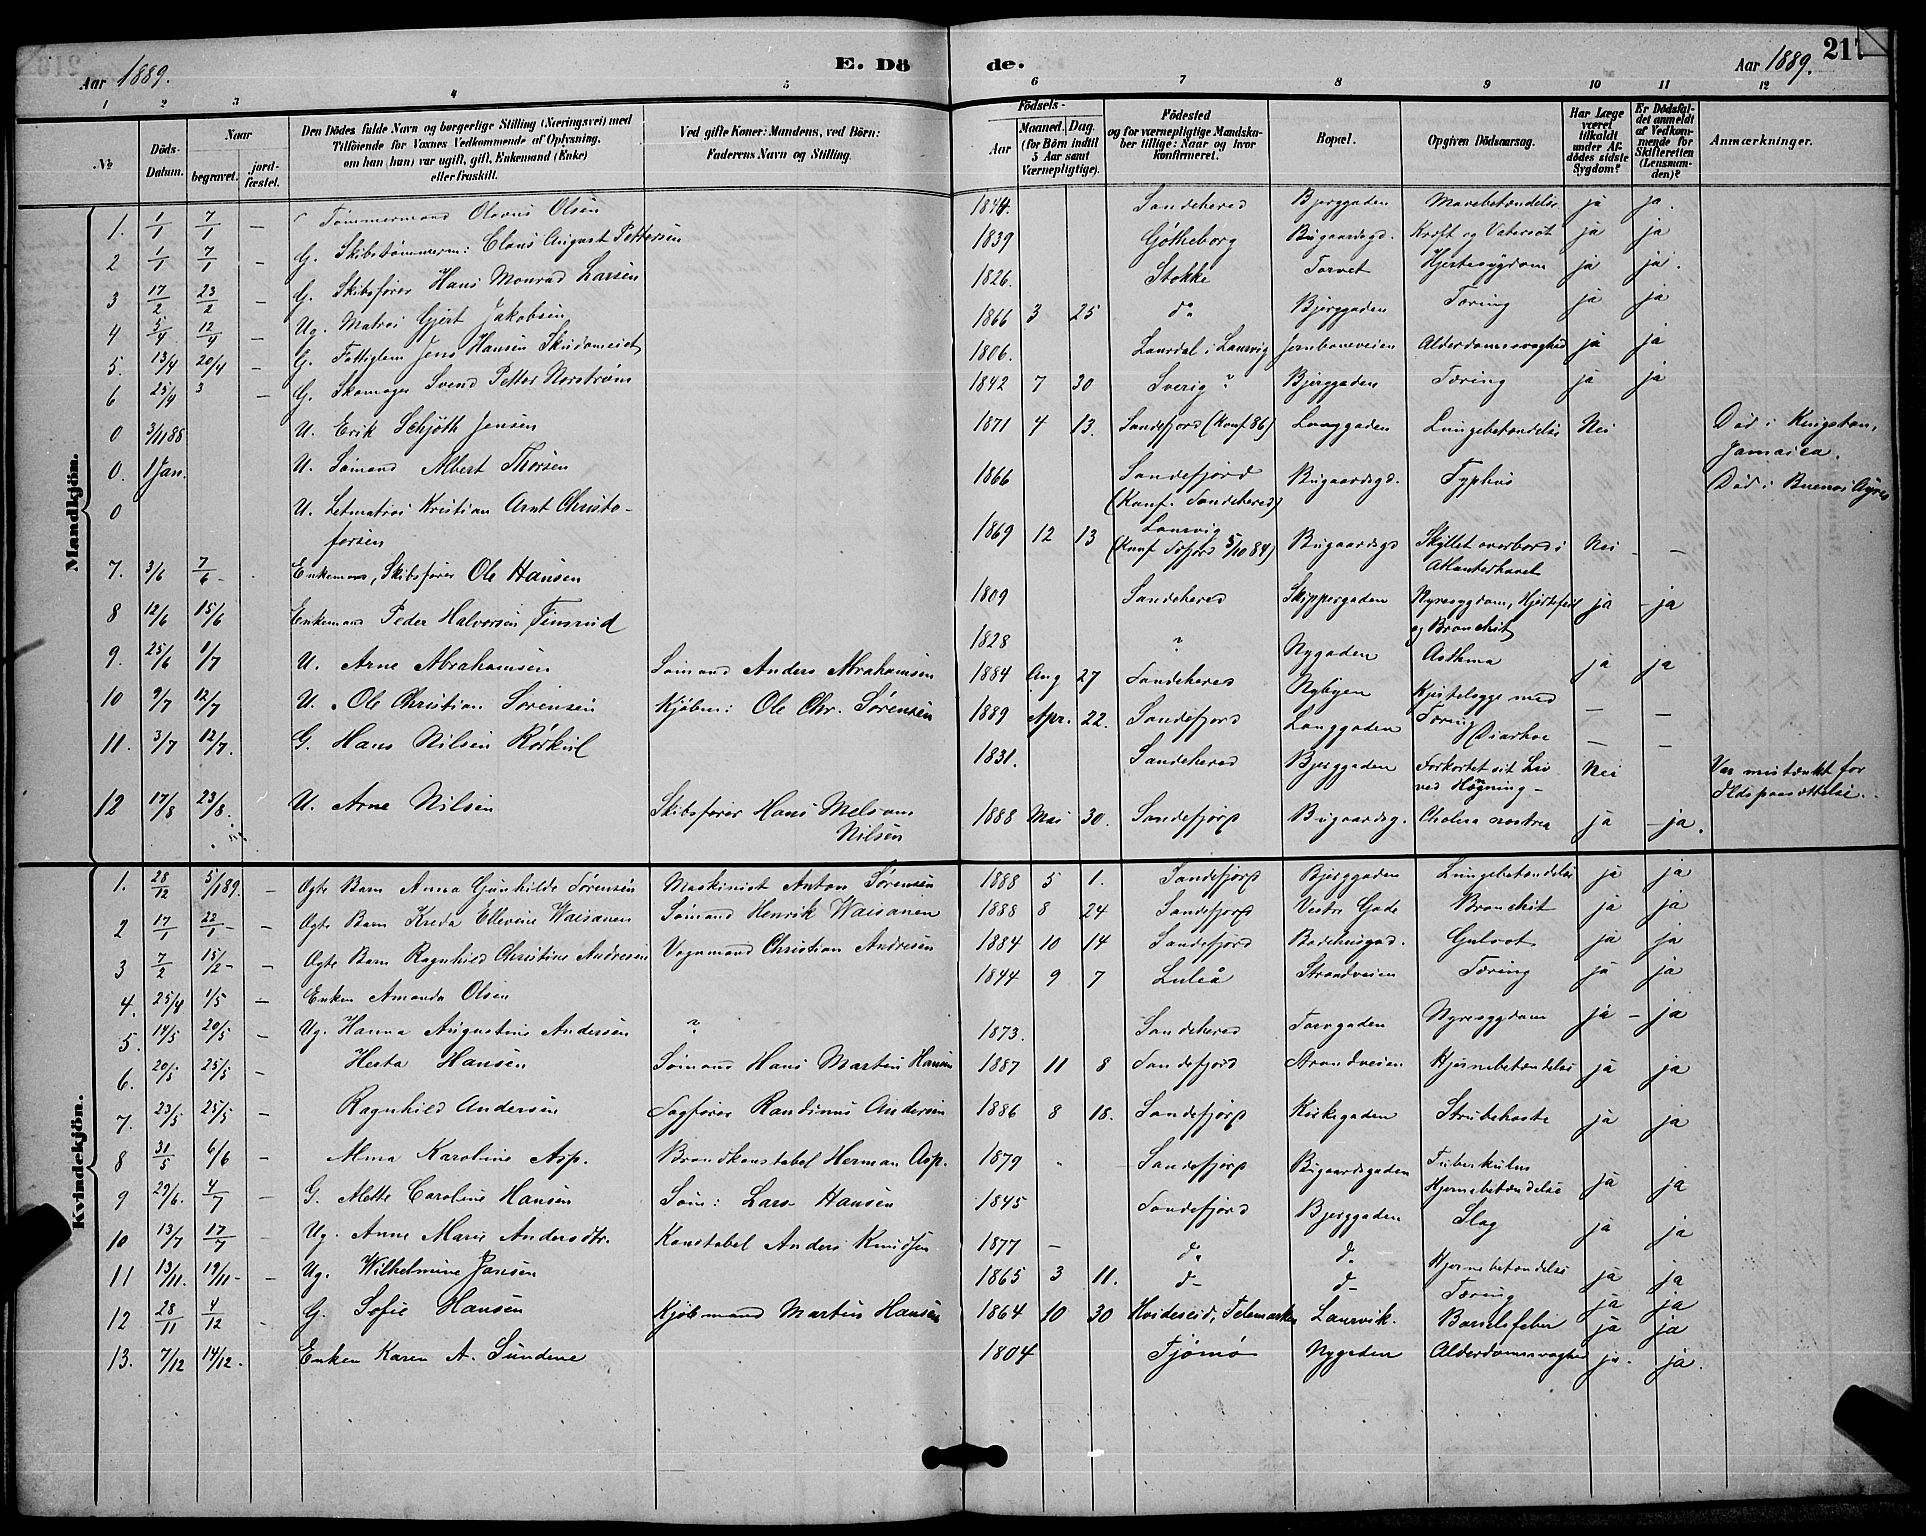 Aar 1889. E. Dö de. Aar 1889. 217
1 2 3 4 5 6 7 8 9 10 11 12
No. Döds-Datum. Naar begravet. jordfæstet. Den Dödes fulde Navn og borgerlige Stilling (Næringsvei) med Tilföiende for Voxnes Vedkommende af Oplysning, om han (hun) var ugift, gift, Enkemand (Enke) eller fraskilt. Ved gifte Koner: Mandens, ved Börn: Faderens Navn og Stilling. Födsels- Aar Maaned. Dag. (for Börn indtil 5 Aar samt Værnepligtige). Födested og for værnepligtige Mandskaber tillige: Naar og hvor konfirmeret. Bopæl. Opgiven Dödsaarsag. Har Læge været tilkaldt under Afdödes sidste Sygdom? Er Dödsfaldet anmeldt af Vedkommende for Skifteretten (Lensmanden)? Anmærkninger.
Mandkjön.
1. 1/1 7/1 — Tömmermand Olavus Olsen 1844. Sandeherred Bjerggaden Mavebetændelse ja ja.
2 1/1 7/1 — G. Skibstömmerm: Claus August Pettersen 1839 Götheborg Bugaardsgd. Kræft og Vatersot ja ja
3 17/2 23/2 — G. Skibsförer Hans Monrad Larsen 1826. Stokke Torvet Hjertesygdom ja ja.
4 5/4 12/4 — Ug. Matros Gjert Jakobsen 1866 3 25 do Bjerggaden Tæring ja ja
5. 13/4 20/4 — G. Fattiglem Jens Hansen 1806. Laurdal i Laurvig Jernbaneveien Alderdomssvaghed ja ja
6 25/4 3 — G. Skomager Svend Petter Norström 1842 7 30 Sverig? Bjerggaden Tæring ja ja
0 3/11 88 U. Erik Schjöth Jensen 1871 4 13. Sandefjord (Konf 86) Langgaden Lungebetændelse Nei Död i Kingston, Jamaica.
0. 1 Jan. U. Sömand Albert Thorsen 1866 Sandefjord (Konf. Sandeherred) Bugaardsgd. Typhus Död i Buenos Ayres
0 U. Letmatros Kristian Arnt Christofersen 1869 12 13 Laurvig (Konf Sefjord 5/10 84) Bugaardsgd Skyllet overbord i Atlanterhavet Nei — —
7. 3/6 7/6 - Enkemand, Skibsförer Ole Hansen 1809 Sandeherred Skippergaden Nyresygdom, Hjertefeil og Bronchit ja - ja
8 12/6 15/6 Enkemand Peder Halvorsen Finsrud 1828 ? Nygaden Asthma ja ja
9. 25/6 1/7 U. Arne Abrahamsen Sömand Anders Abrahamsen 1884 Aug 27 Sandeherred Nybyen Kjertelsyge med Tæring — —
10 9/7 12/7 U. Ole Christian Sörensen Kjöbm: Ole Chr. Sörensen 1889 Apr. 22. Sandefjord Langgaden Diarhoe — —
11. 3/7 12/7. G. Hans Nilsen Rörkul 1831. Sandeherred Bjerggaden Forkortet sit Liv ved Hængning - Nei Var mistænkt for Ildspaasættelse.
12 17/8 23/8. U. Arne Nilsen Skibsförer Hans Melsom Nilsen 1888 Mai 30. Sandefjord Bugaardsg. Cholera nostras ja - ja.
Kvindekjön.
1. 28/12 5/1 89. — Ægte Barn Anna Gunhilde Sörensen Maskinist Anton Sörensen 1888 5 1. Sandefjord Bjerggaden Lungebetændelse ja ja
2 17/1 22/1 - — Ægte Barn Kreda Ellevine Waisanen Sömand Henrik Waisanen 1888 8 24 Sandefjord Vestre Gade Bronchit ja ja
3 7/2 15/2 - — Ægte Barn Ragnhild Christine Andresen Vognmand Christian Andresen 1884 10 14 Sandefjord Badehusgad. Gulsot ja ja
4. 25/4 1/5 — Enken Amanda Olsen 1844 9 7 Luleå Strandveien Tæring ja ja
5. 14/5 20/5 — Ug. Hanna Augustine Andersen ? 1873. Sandeherred Torvgaden Nyresygdom ja - ja
6. 20/5 25/5 — Herta Hansen Sömand Hans Martin Hansen 1887 11 8 Sandefjord Strandveien Hjernebetændelse ja ja
7. 23/5 25/5 — Ragnhild Andersen Sagförer Randinus Andersen 1886 8 18. Sandefjord Kirkegaden Strubehoste ja ja
8 31/5 6/6 — Alma Karoline Asp. Brandkonstabel Herman Asp. 1879 Sandefjord Bugaardsgaden Tuberkuløs Hjernebetændelse ja ja
9 29/6. 4/7 — G. Mette Caroline Hansen Söm: Lars Hansen 1845 Sandefjord Bjerggaden Slag ja ja
10 13/7 17/7 — Ug. Anne Marie Andersdtr. Konstabel Anders Knudsen 1877 — do do Hjernebetændelse ja ja
11 13/11. 19/11 - — Ug. Wilhelmine Jansen 1865 3 11. do do Tæring ja ja
12 28/11 4/12 . G. Sofie Hansen Kjöbmand Martin Hansen 1864 10 30 Hvideseid, Telemarken Laurvik. Barselfeber ja ja
13. 7/12 14/12 - Enken Karen A. Sundene 1804 Tjömö Nygaden Alderdomssvaghed ja. ja.